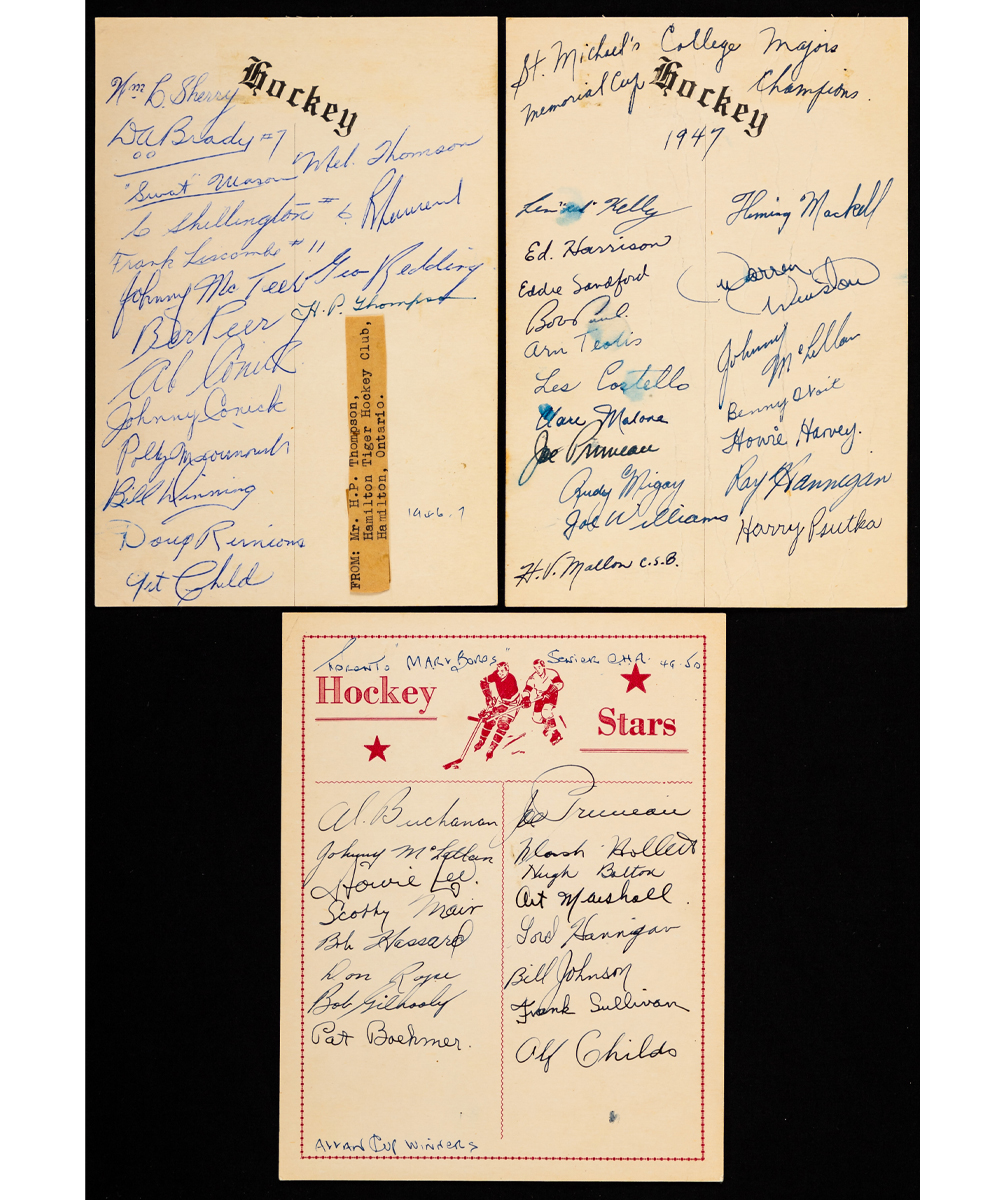 Hockey
Wm C. Sherry
D A Brady #7
Mel. Thomson
"Swat" Mason
C Shellington #6
Frank Liscombe #11
Johnny McTeer
Geo Redding
H.P. Thompson
Bert Peer
Al Conick
Johnny Conick
Bill Winning
Doug Rimions
Art Child
FROM: Mr. H.P. Thompson,
Hamilton Tiger Hockey Club,
Hamilton, Ontario.
1946.7
St. Michael's College Majors
Memorial Cup Hockey Champions.
1947
Len "Red" Kelly
Ed. Harrison
Eddie Sandford
Bob Paul.
Arn Teolis
Les Costello
Clare Malone
Joe Primeau
Rudy Migay
Joe Williams
H.V. Mallon C.S.B.
Fleming Mackell
Warren Winston
Johnny McLellan
Benny Woit
Howie Harvey.
Ray Hannigan
Harry Psutka
Toronto "Marlboros" Senior O.H.A. 49.50
Hockey
Stars
Al. Buchanan
Johnny McLellan
Howie Lee.
Scotty Mair
Bob Hassard
Don Rope
Bob Gilhooly
Pat Boehmer.
Joe Primeau
Flash Hollett
Hugh Bolton
Art Marshall.
Gord Hannigan
Bill Johnson
Frank Sullivan
Alf Childs
Allan Cup Winners